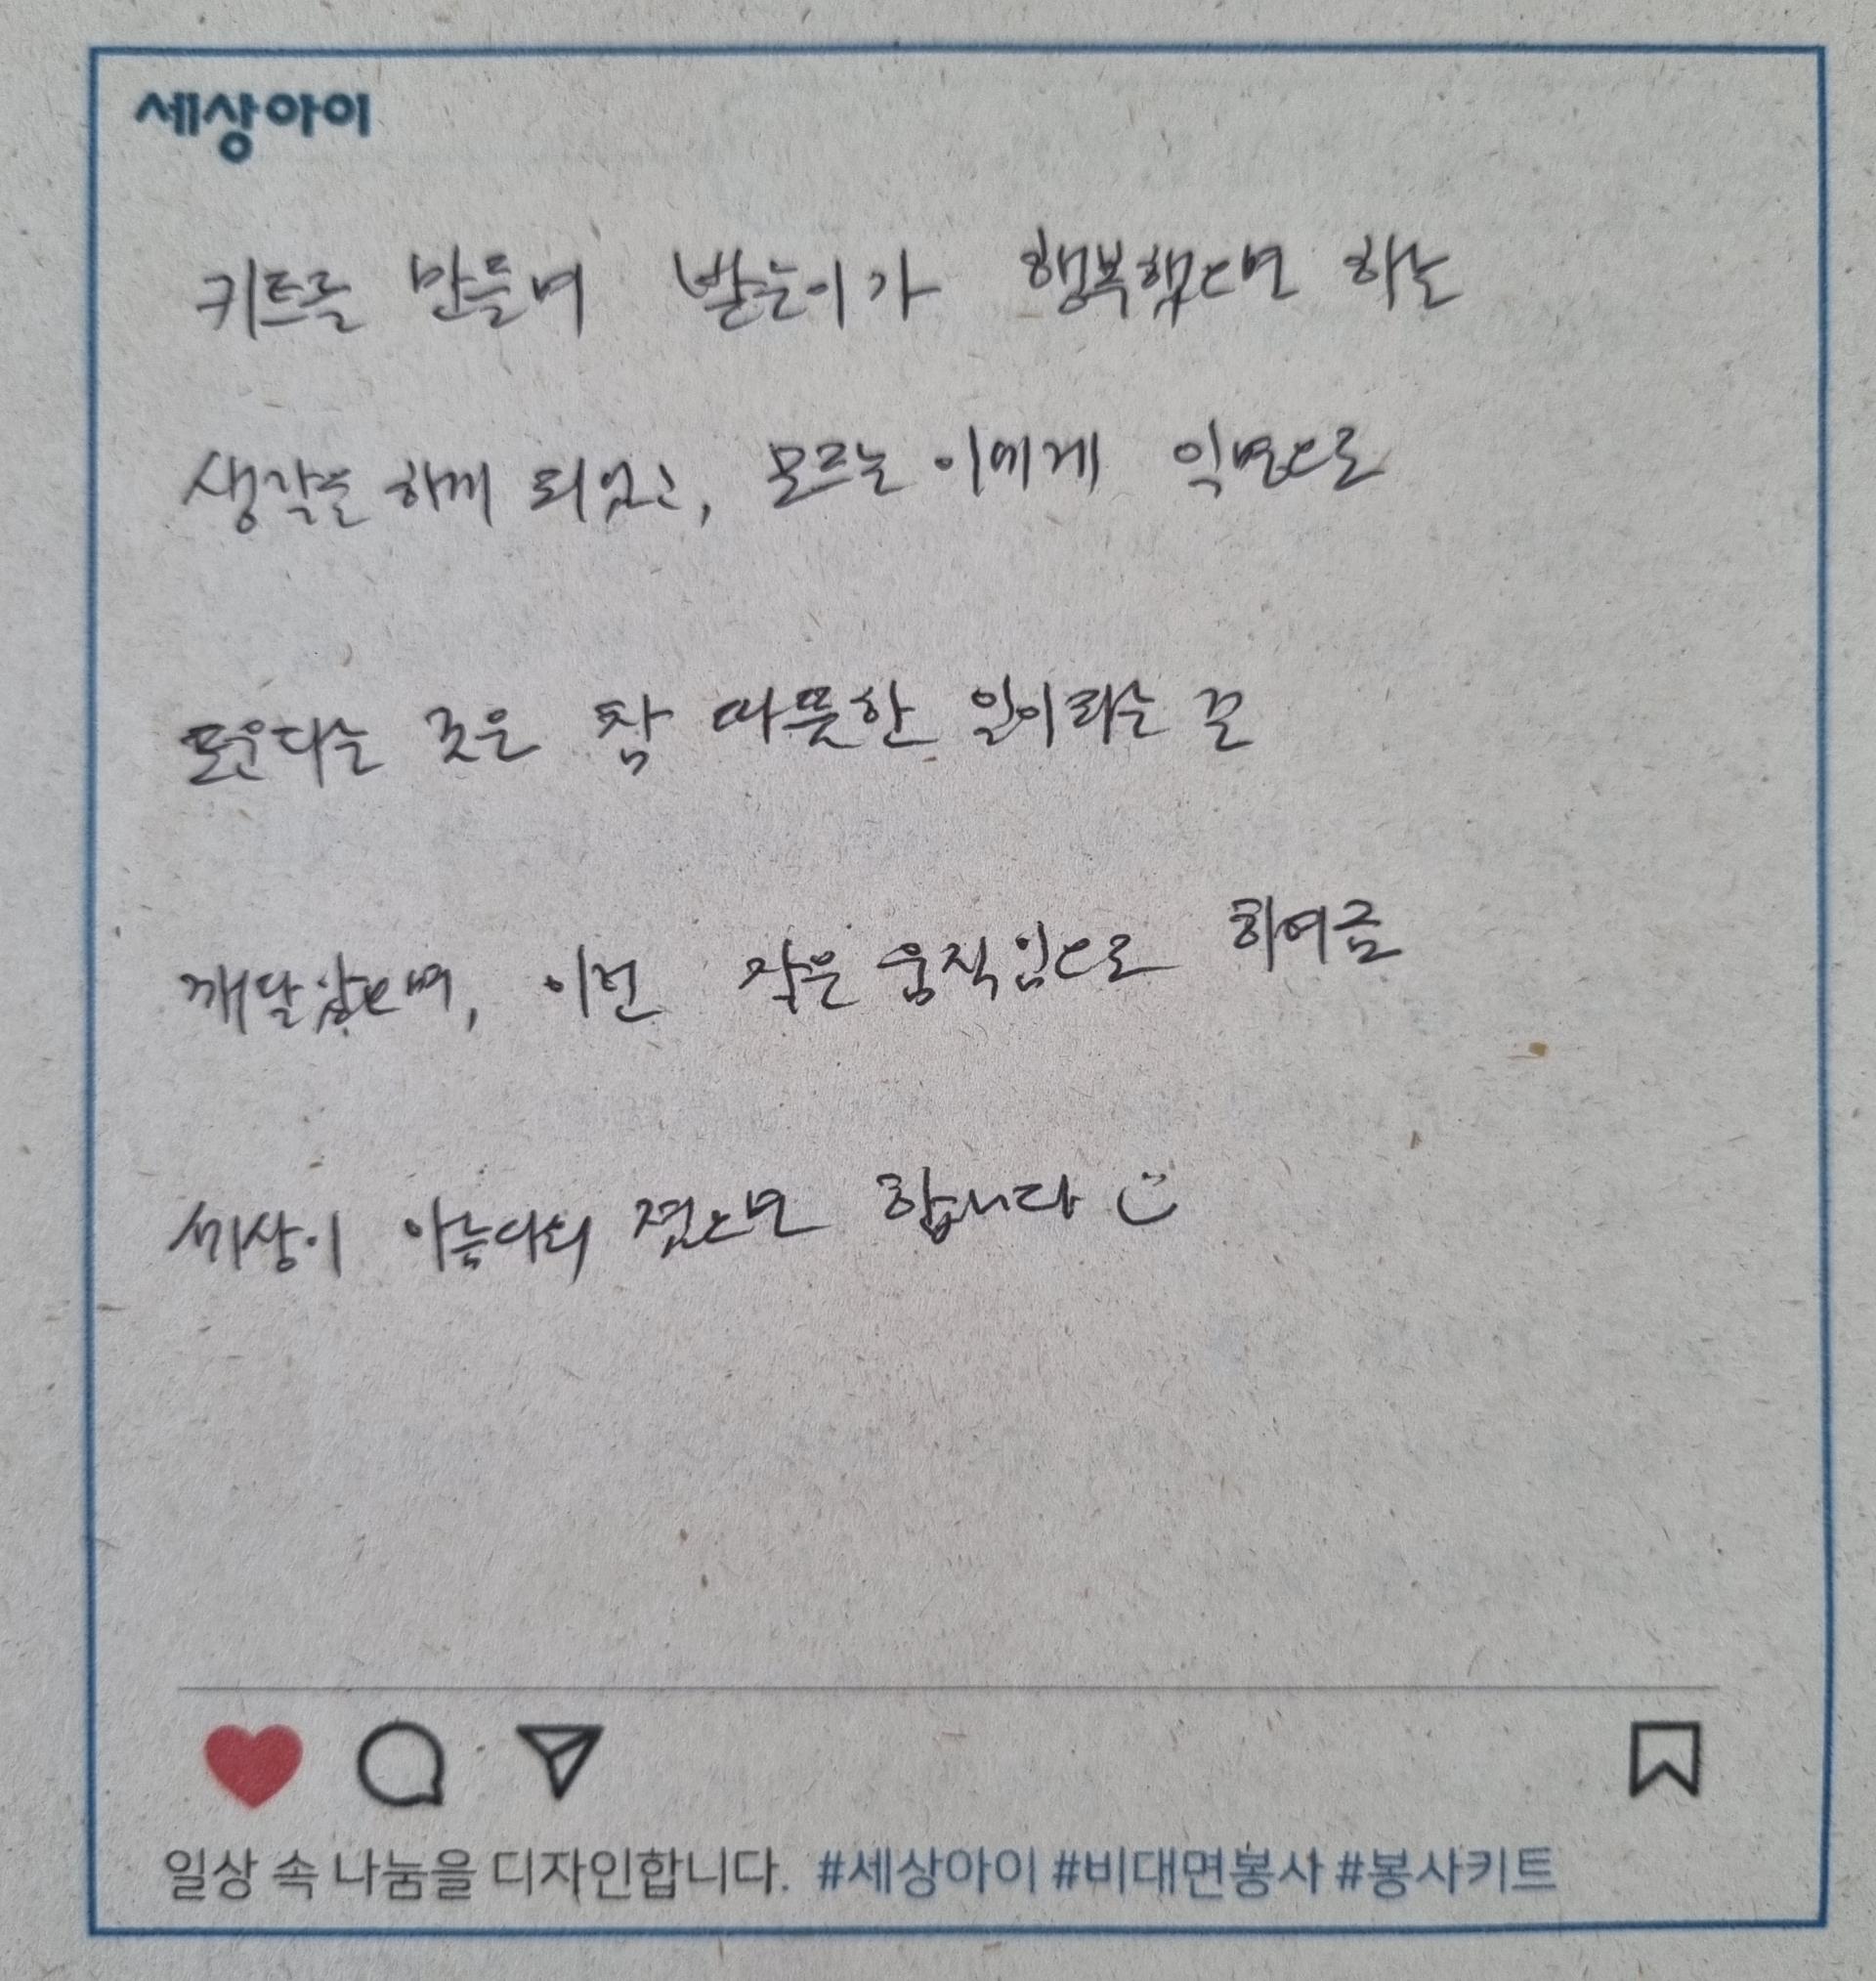 세상아이
키트를 만들며 받는이가 행복했으면 하는
생각을 하게 되었고, 모르는 이에게 익명으로
도운다는 것은 참 따뜻한 일이라는 걸
깨달았으며, 이런 작은 움직임으로 하여금
세상이 아름다워 졌으면 합니다
일상 속 나눔을 디자인합니다. #세상아이 #비대면봉사 #봉사키트